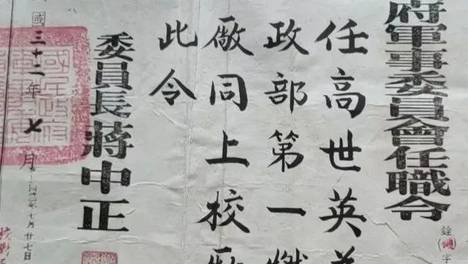 府軍事委員會任職令
任高世英為
政部第一燃
廠同上校
此令
委員長蔣中正
國三十一年七月